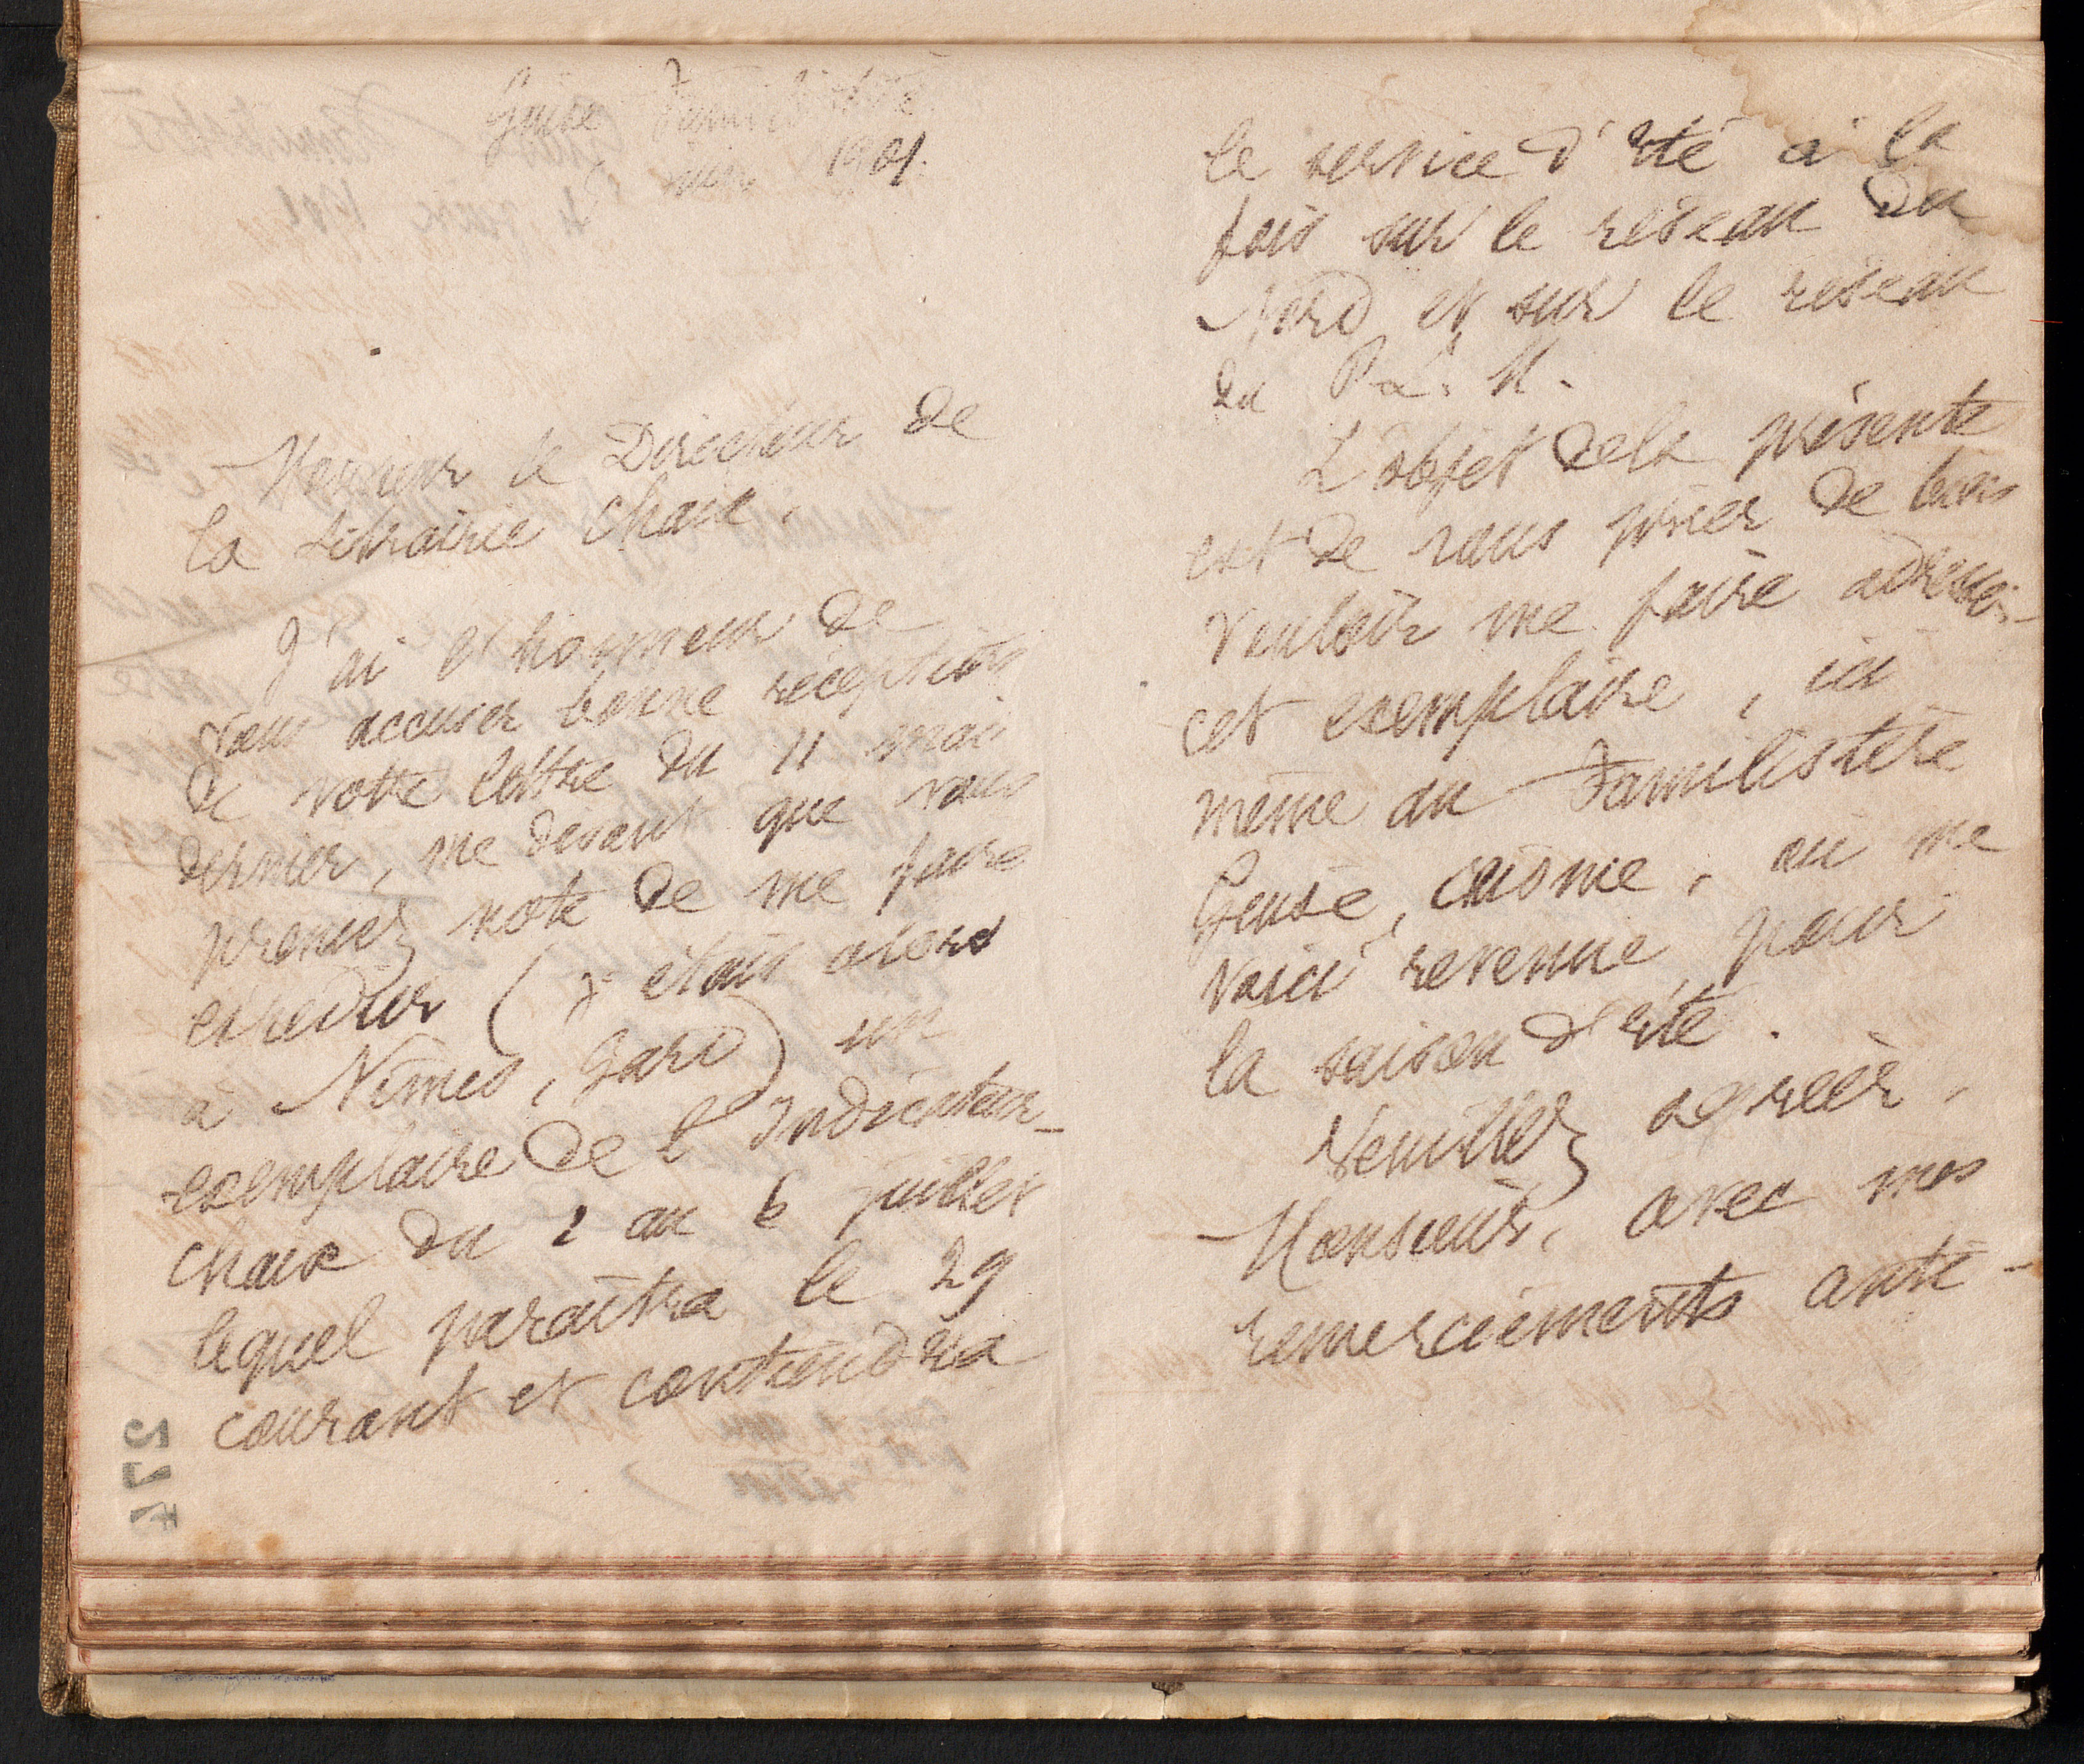 Guise Familistère
5 juin 1901.
Monsieur le Directeur de
la Librairie Chaix,
J'ai l'honneur de
vous accuser bonne réception
de votre lettre du 11 mai
dernier, me disant que vous
prenez note de me faire
expédier (j'étais alors
à Nîmes, Gard) un
exemplaire de l'Indicateur-
Chaix du 1 au 6 juillet
lequel paraîtra le 29
courant et contiendra
le service d'été à la
fois sur le réseau du
Nord et sur le réseau
du P. L. M.
L'objet de la présente
est de vous prier de bien
vouloir me faire adresser
cet exemplaire, ici
même au Familistère
Guise, Aisne, où me
voici revenue pour
la saison d'été.
Veuillez agréer,
Monsieur, avec mes
remerciements anti-